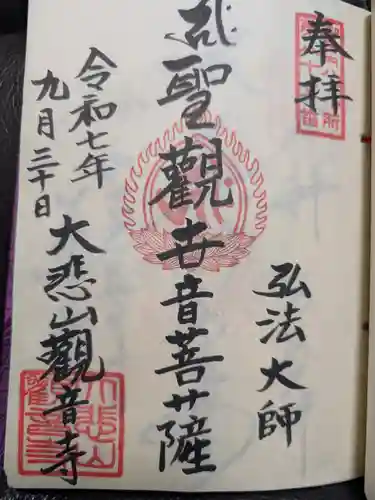 奉拝
弘法大師
聖觀世音菩薩
令和七年
九月三十日
大悲山觀音寺